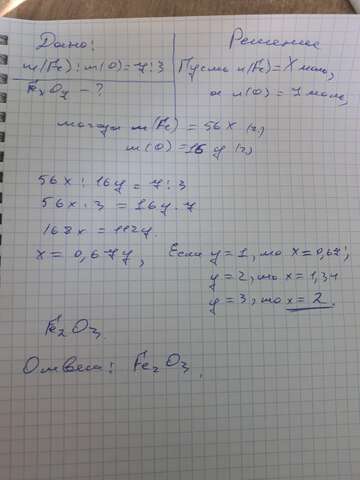 Дано:
m(Fe) : m(O) = 7:3
FexOy - ?
Решение
Пусть n(Fe) = X моль,
а n(O) = y моль,
тогда m(Fe) = 56x (г),
m(O) = 16y (г),
56x : 16y = 7:3
56x · 3 = 16y · 7
168x = 112y.
x = 0,67y,
Если y = 1, то x = 0,67;
y = 2, то x = 1,34
y = 3, то x = 2.
Fe2O3.
Ответ: Fe2O3.